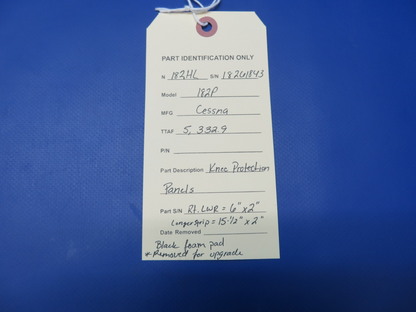 PART IDENTIFICATION ONLY
N 182HL S/N 18261843
Model 182P
MFG Cessna
TTAF 5,332.9
P/N
Part Description Knee Protection
Panels
Part S/N Rt. LWR = 6" x 2"
Longer strip = 15-1/2" x 2"
Date Removed
Black foam pad
*Removed for upgrade